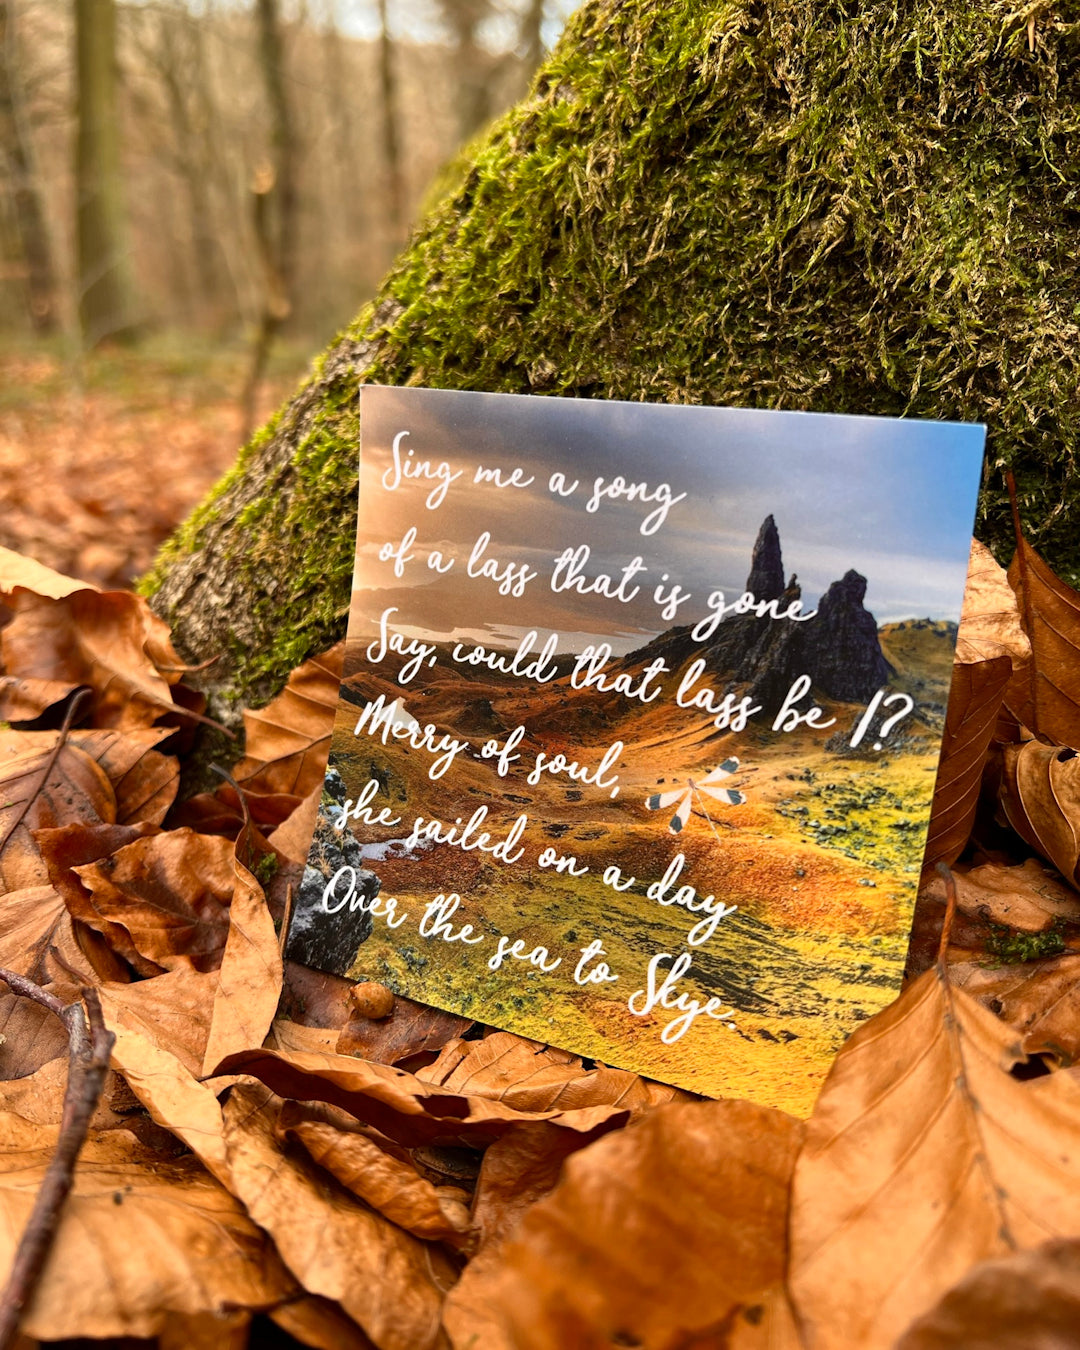 Sing me a song
of a lass that is gone
Say, could that lass be I?
Merry of soul,
she sailed on a day
Over the sea to Skye.